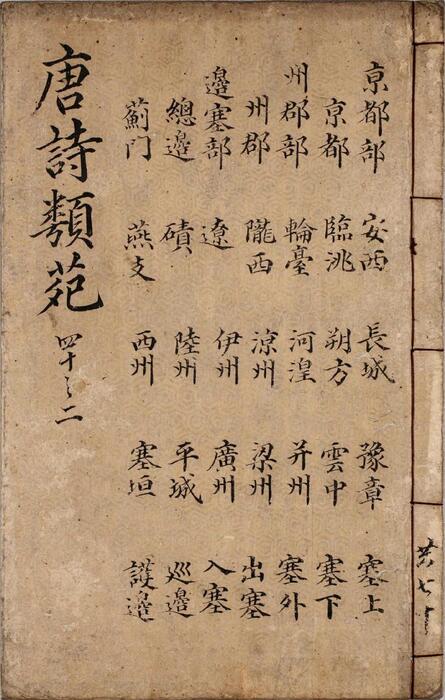 亰都部 安西 長城 豫章 塞上
亰都 臨洮 朔方 雲中 塞下
州郡部 輪臺 河湟 并州 塞外
州郡 隴西 涼州 梁州 出塞
邊塞部 遼 伊州 廣州 入塞
總邊 磧 陸州 平城 巡邊
薊门 燕支 西州 塞垣 護邊
唐詩類苑 四十之二